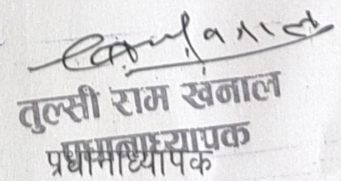 तुल्सी राम खनाल
प्रधानाध्यापक
प्रधानाध्यापक